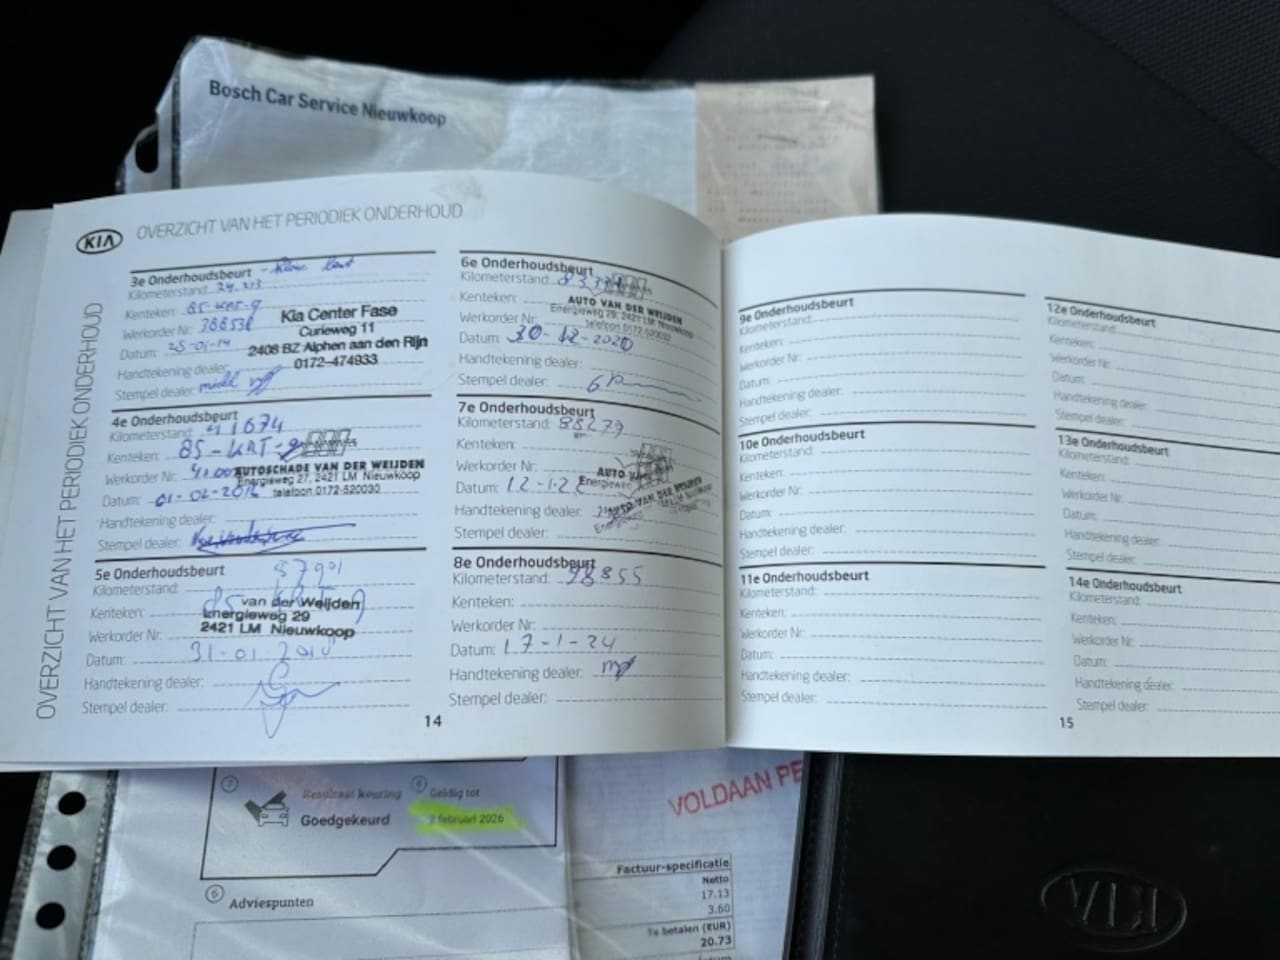 Bosch Car Service Nieuwkoop
KIA
OVERZICHT VAN HET PERIODIEK ONDERHOUD
OVERZICHT VAN HET PERIODIEK ONDERHOUD
3e Onderhoudsbeurt
Kilometerstand:
Kenteken: 85-KRT-9
Werkorder Nr:
Datum: 28-01-14
Handtekening dealer:
Stempel dealer:
Kia Center Fase
Curieweg 11
2408 BZ Alphen aan den Rijn
0172-474933
4e Onderhoudsbeurt
Kilometerstand: 41674
Kenteken: 85-KRT-9
Werkorder Nr:
Datum: 01-02-2016
Handtekening dealer:
Stempel dealer:
AUTOSCHADE VAN DER WEIJDEN
Energieweg 27, 2421 LM Nieuwkoop
telefoon 0172-520030
5e Onderhoudsbeurt
Kilometerstand: 57901
Kenteken:
Werkorder Nr:
Datum: 31-01
Handtekening dealer:
Stempel dealer:
van der Weijden
Energieweg 29
2421 LM Nieuwkoop
14
6e Onderhoudsbeurt
Kilometerstand:
Kenteken:
Werkorder Nr:
Datum: 30-12-2020
Handtekening dealer:
Stempel dealer:
AUTO VAN DER WEIJDEN
Energieweg 29, 2421 LM Nieuwkoop
telefoon 0172-520030
7e Onderhoudsbeurt
Kilometerstand: 88279
Kenteken:
Werkorder Nr:
Datum: 12-1-22
Handtekening dealer:
Stempel dealer:
AUTO VAN DER WEIJDEN
8e Onderhoudsbeurt
Kilometerstand: 98855
Kenteken:
Werkorder Nr:
Datum: 17-1-24
Handtekening dealer:
Stempel dealer:
9e Onderhoudsbeurt
Kilometerstand:
Kenteken:
Werkorder Nr:
Datum:
Handtekening dealer:
Stempel dealer:
10e Onderhoudsbeurt
Kilometerstand:
Kenteken:
Werkorder Nr:
Datum:
Handtekening dealer:
Stempel dealer:
11e Onderhoudsbeurt
Kilometerstand:
Kenteken:
Werkorder Nr:
Datum:
Handtekening dealer:
Stempel dealer:
12e Onderhoudsbeurt
Kilometerstand:
Kenteken:
Werkorder Nr:
Datum:
Handtekening dealer:
Stempel dealer:
13e Onderhoudsbeurt
Kilometerstand:
Kenteken:
Werkorder Nr:
Datum:
Handtekening dealer:
Stempel dealer:
14e Onderhoudsbeurt
Kilometerstand:
Kenteken:
Werkorder Nr:
Datum:
Handtekening dealer:
Stempel dealer:
15
7
Resultaat keuring
Goedgekeurd
8
Geldig tot
2 februari 2026
6
Adviespunten
VOLDAAN PE
Factuur-specificatie
Netto
17.13
3.60
Te betalen (EUR)
20.73
KIA